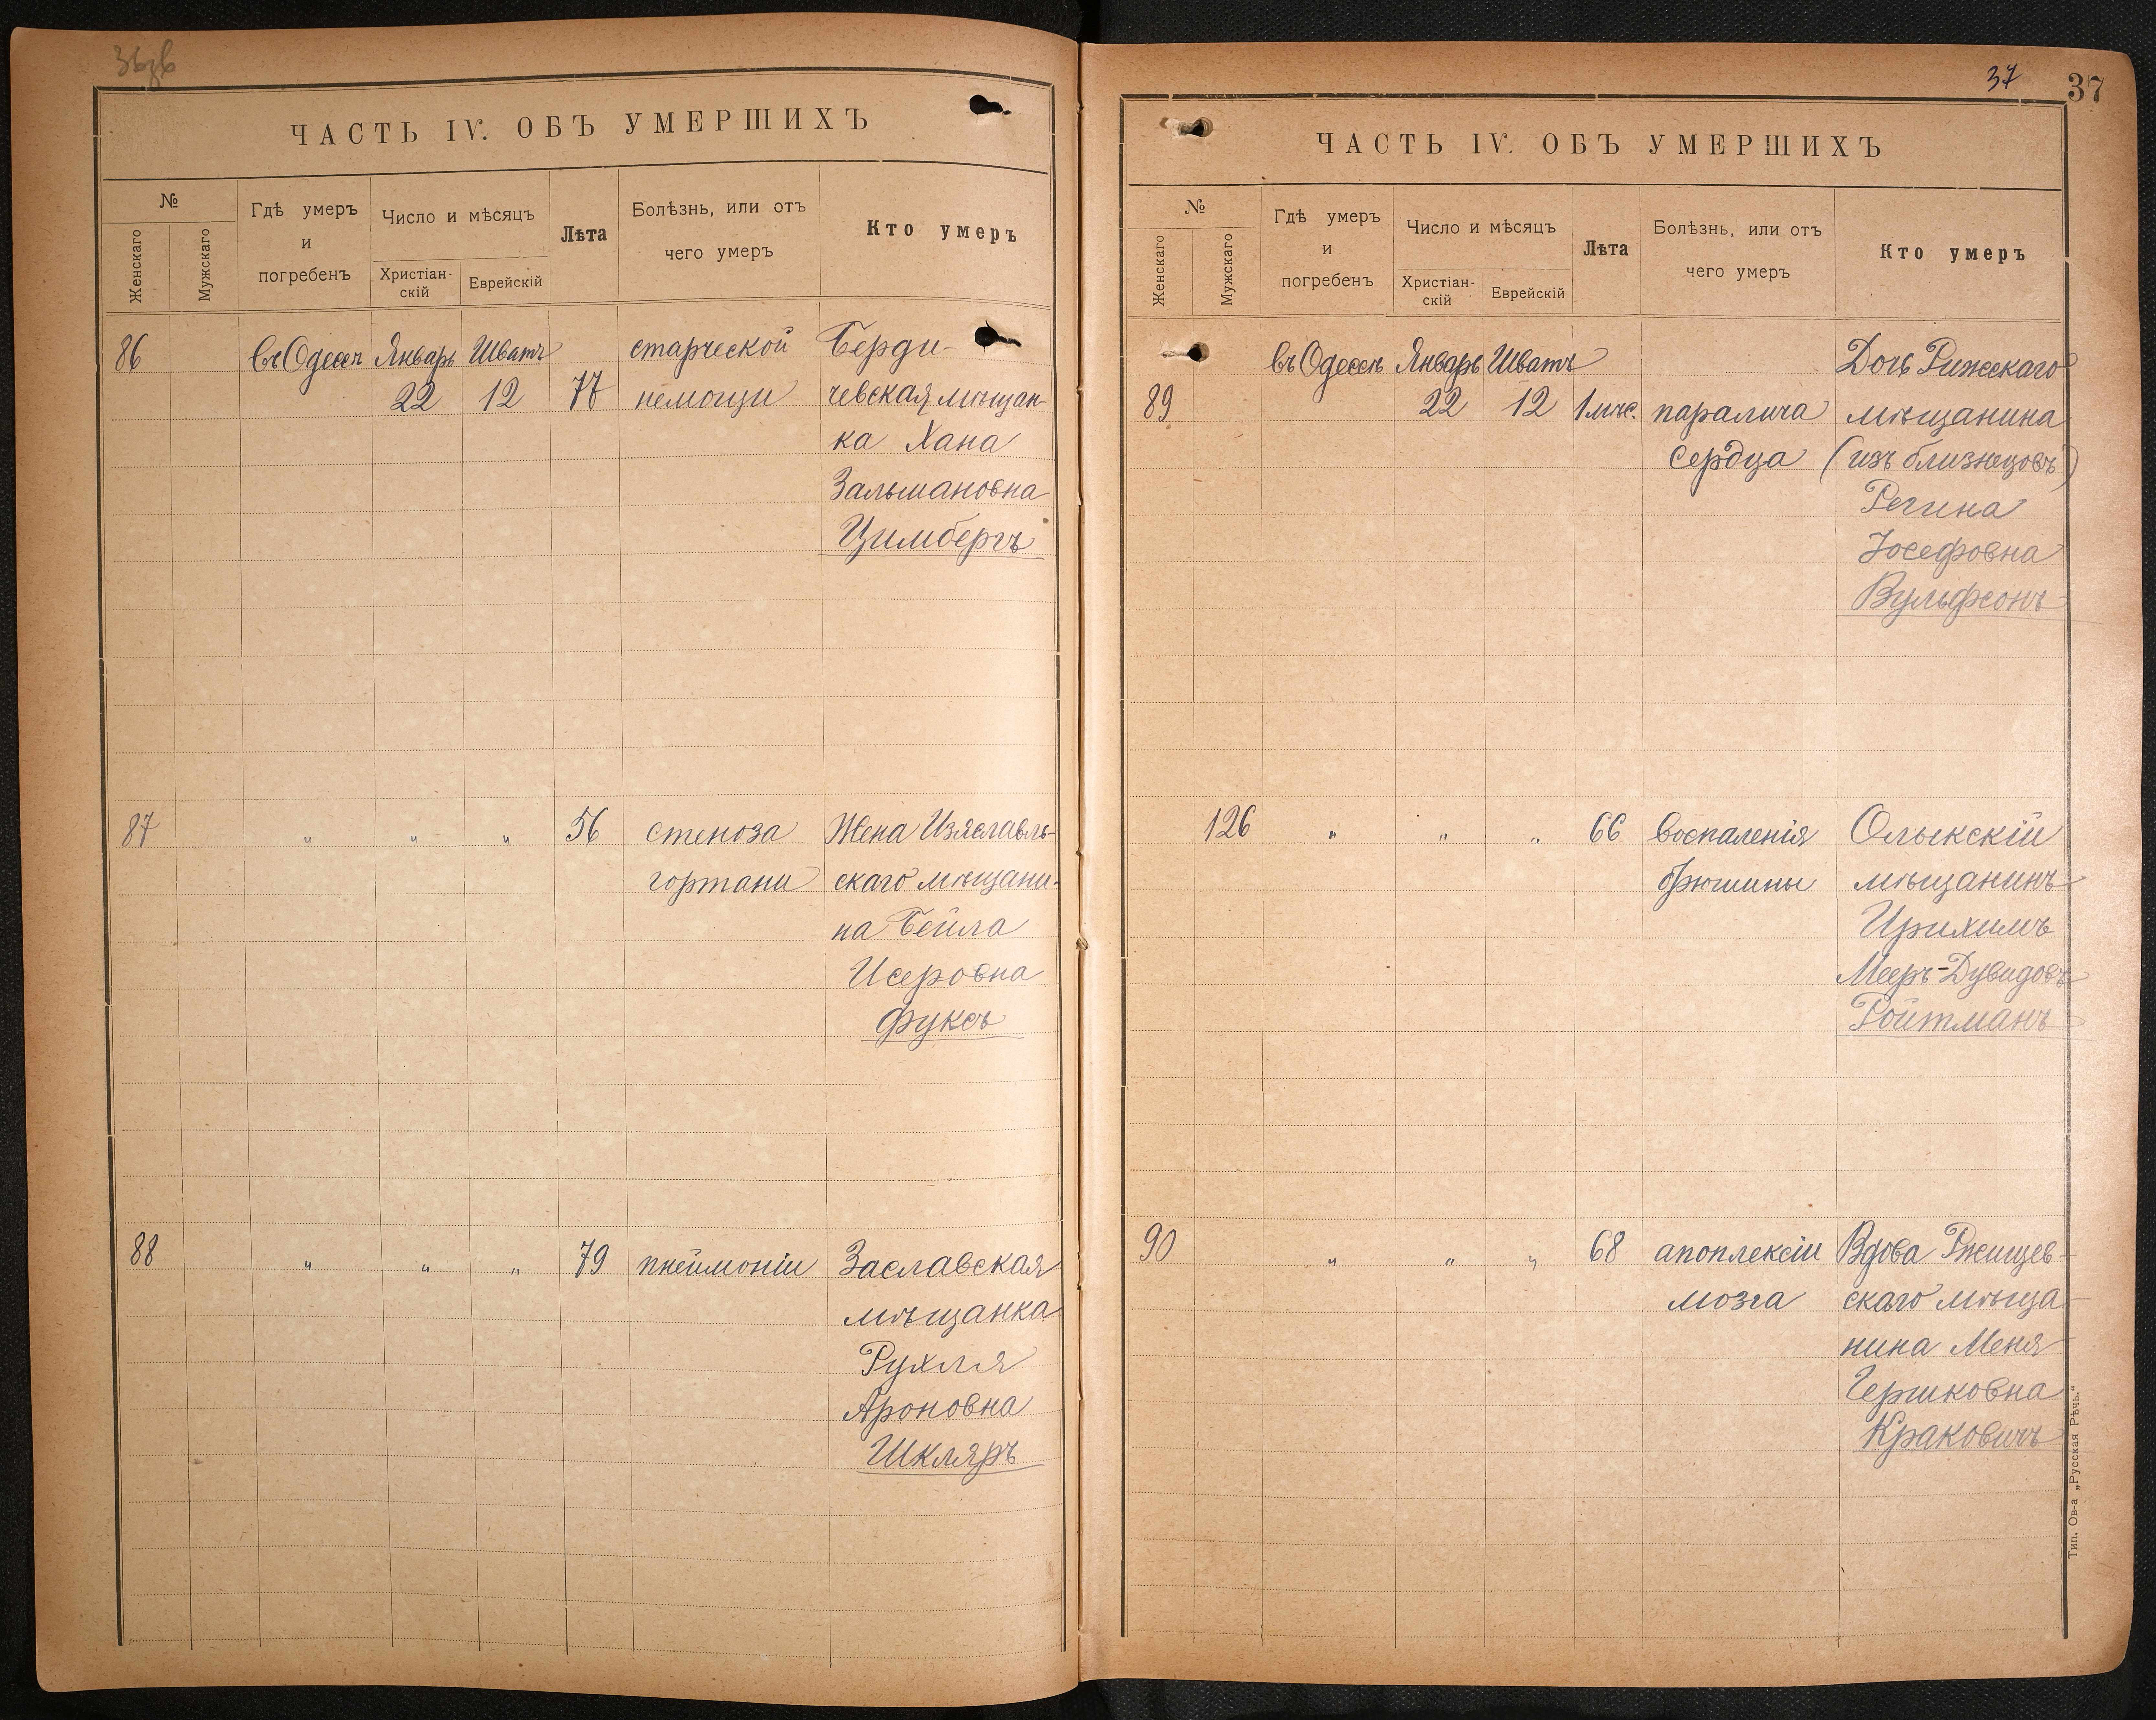 ЧАСТЬ IV. ОБЪ УМЕРШИХЪ
№
Женскаго
Мужскаго
Гдѣ умеръ
и
погребенъ
Число и мѣсяцъ
Христіан-
скій
Еврейскій
Лѣта
Болѣзнь, или отъ
чего умеръ
Кто умеръ
86 въ Одессѣ Январь Шватъ старческой Берди-
22 12 77 немощи чевская мѣщан-
ка Хана
Зальмановна
Цимбергъ
87 " " " 56 стеноза Жена Изяславль-
гортани скаго мѣщани-
на Бейла
Исеровна
Фуксъ
88 " " " 79 пнеймоніи Заславская
мѣщанка
Рухля
Ароновна
Шкляръ
37 37
ЧАСТЬ IV. ОБЪ УМЕРШИХЪ
№
Женскаго
Мужскаго
Гдѣ умеръ
и
погребенъ
Число и мѣсяцъ
Христіан-
скій
Еврейскій
Лѣта
Болѣзнь, или отъ
чего умеръ
Кто умеръ
въ Одессѣ Январь Шватъ Дочь Рижскаго
89 22 12 1 мѣс. паралича мѣщанина
сердца (изъ близнецовъ)
Регина
Іосефовна
Вульфсонъ
126 " " " 66 воспаленія Олыкскій
брюшины мѣщанинъ
Ирихимъ
Мееръ-Дувидовъ
Ройтманъ
90 " " " 68 апоплексіи Вдова Ржищев-
мозга скаго мѣща-
нина Меня
Гершковна
Краковичъ
Тип. Ов-а „Русская Рѣчь."